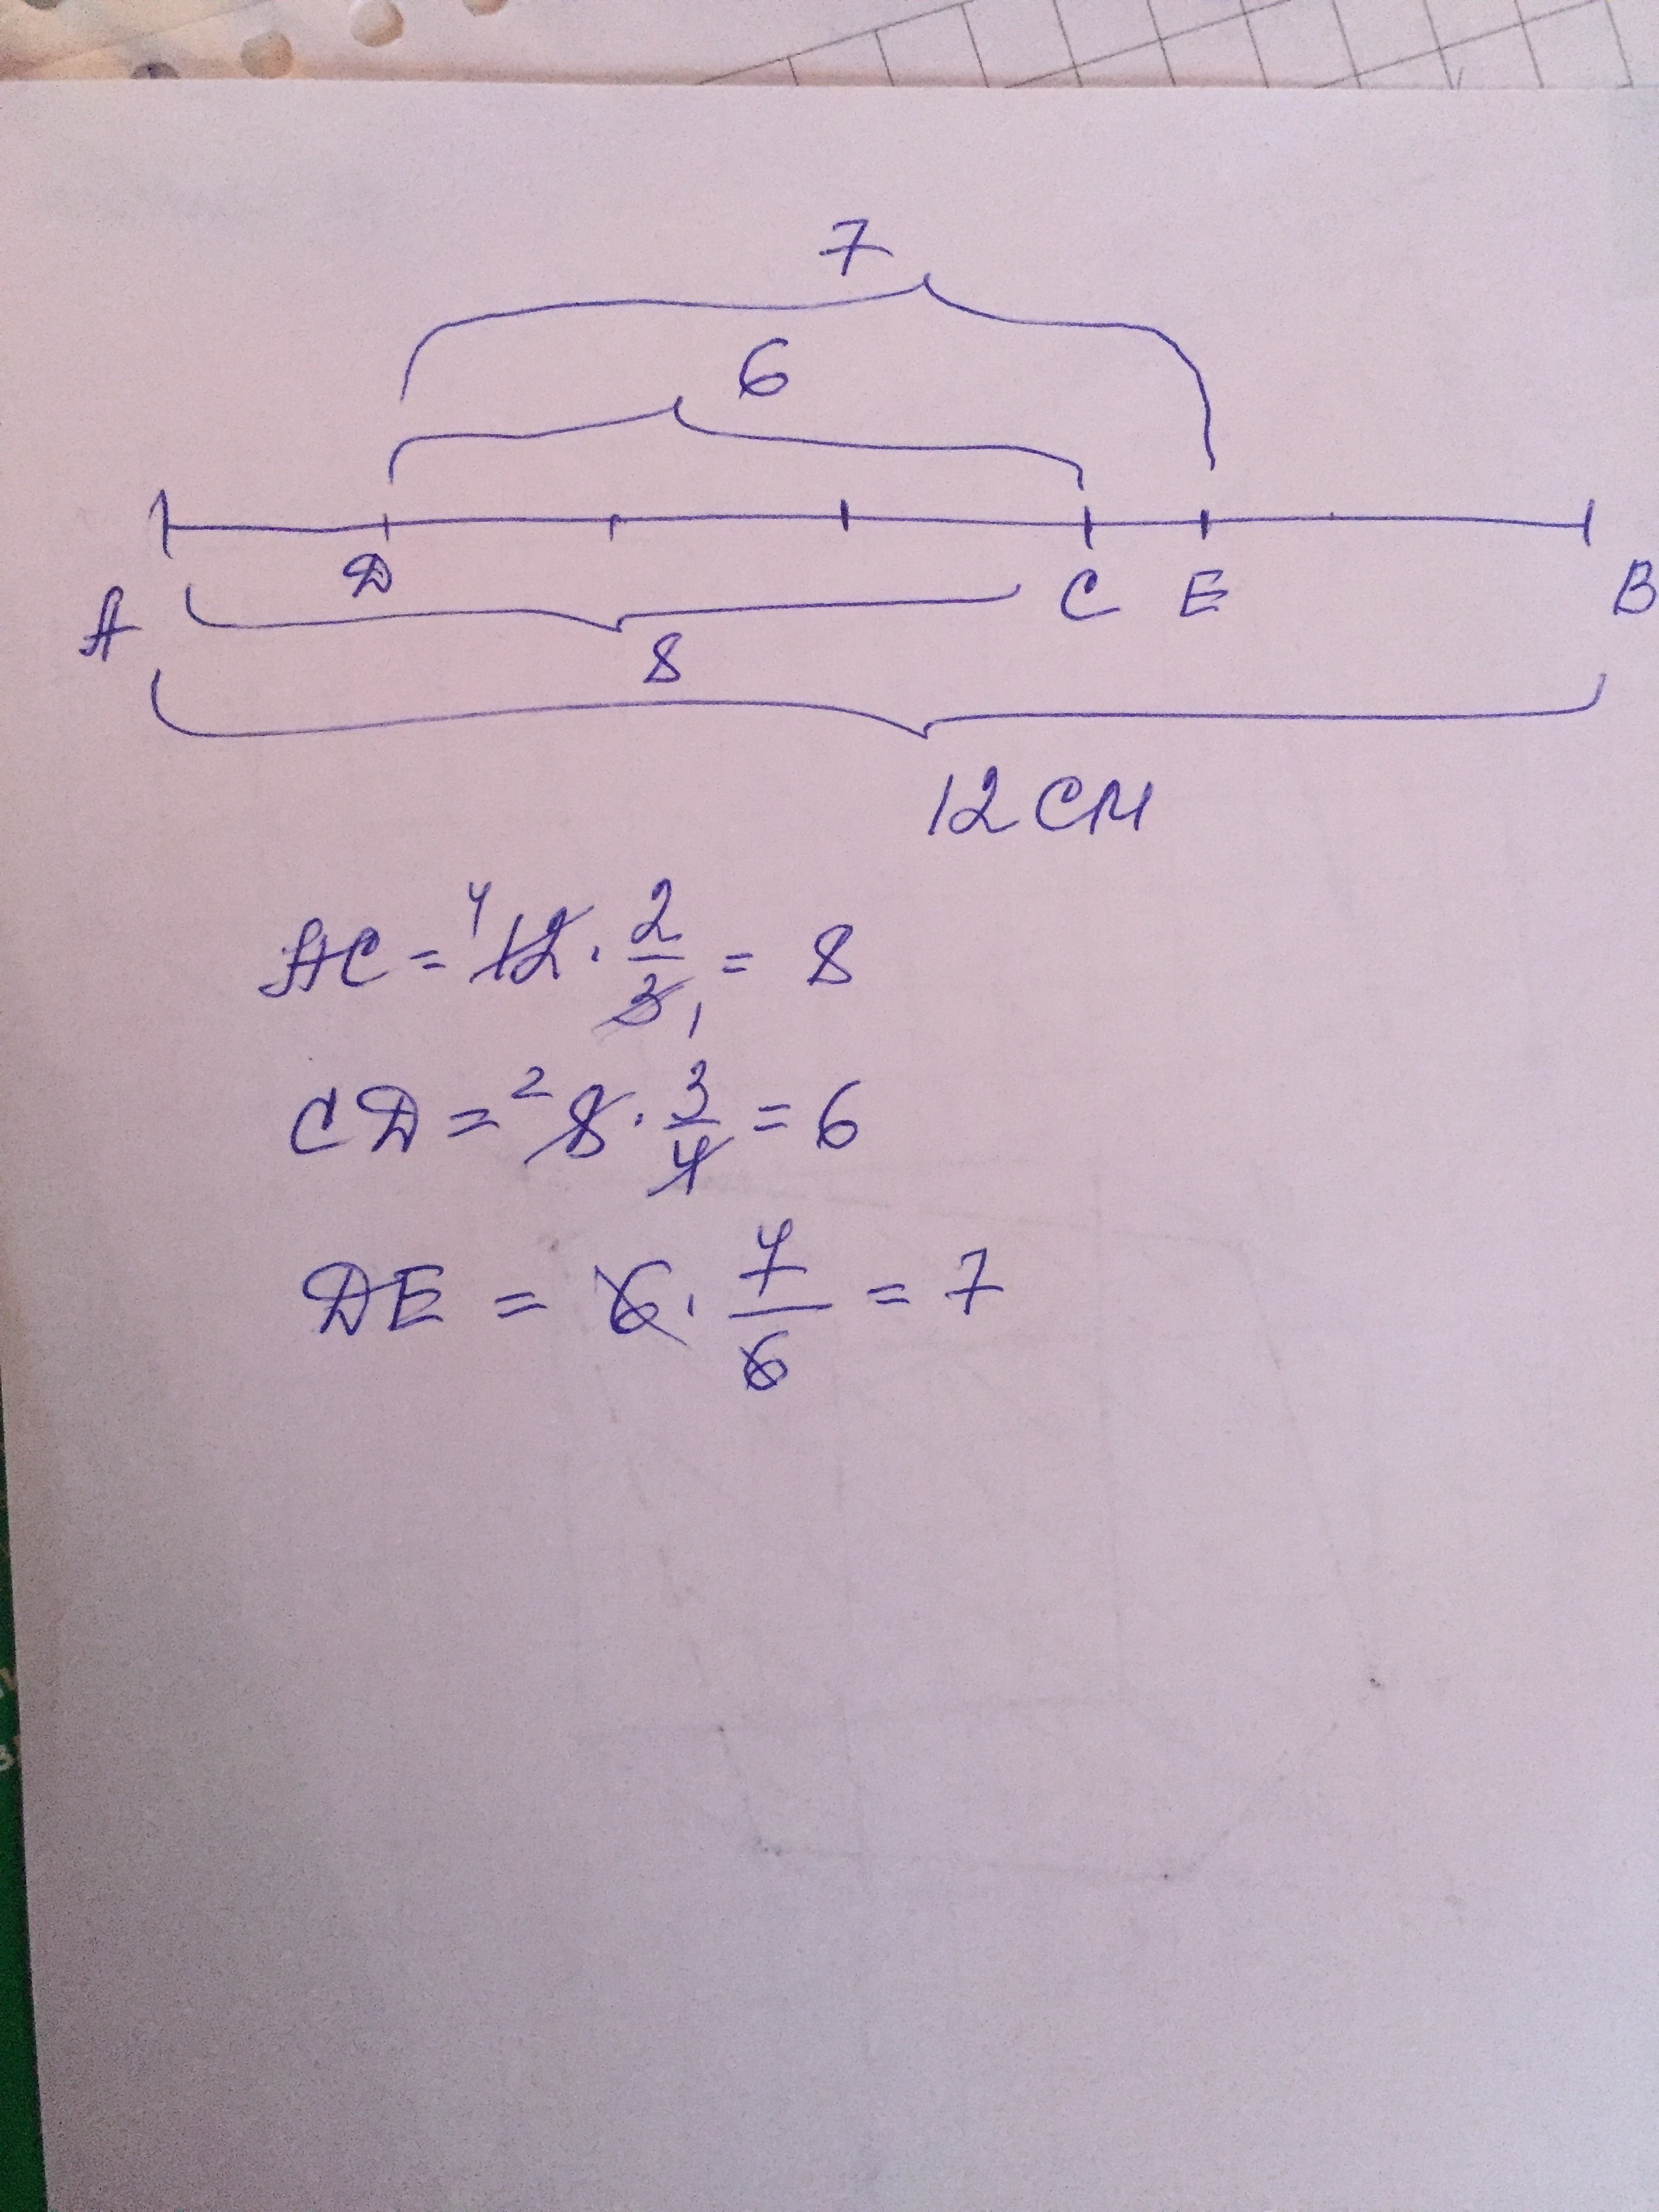 7
6
D C E B
A
8
12 СМ
AC = 4 12 · 2/3 1 = 8
CD = 2 8 · 3/4 = 6
DE = 6 · 7/6 = 7